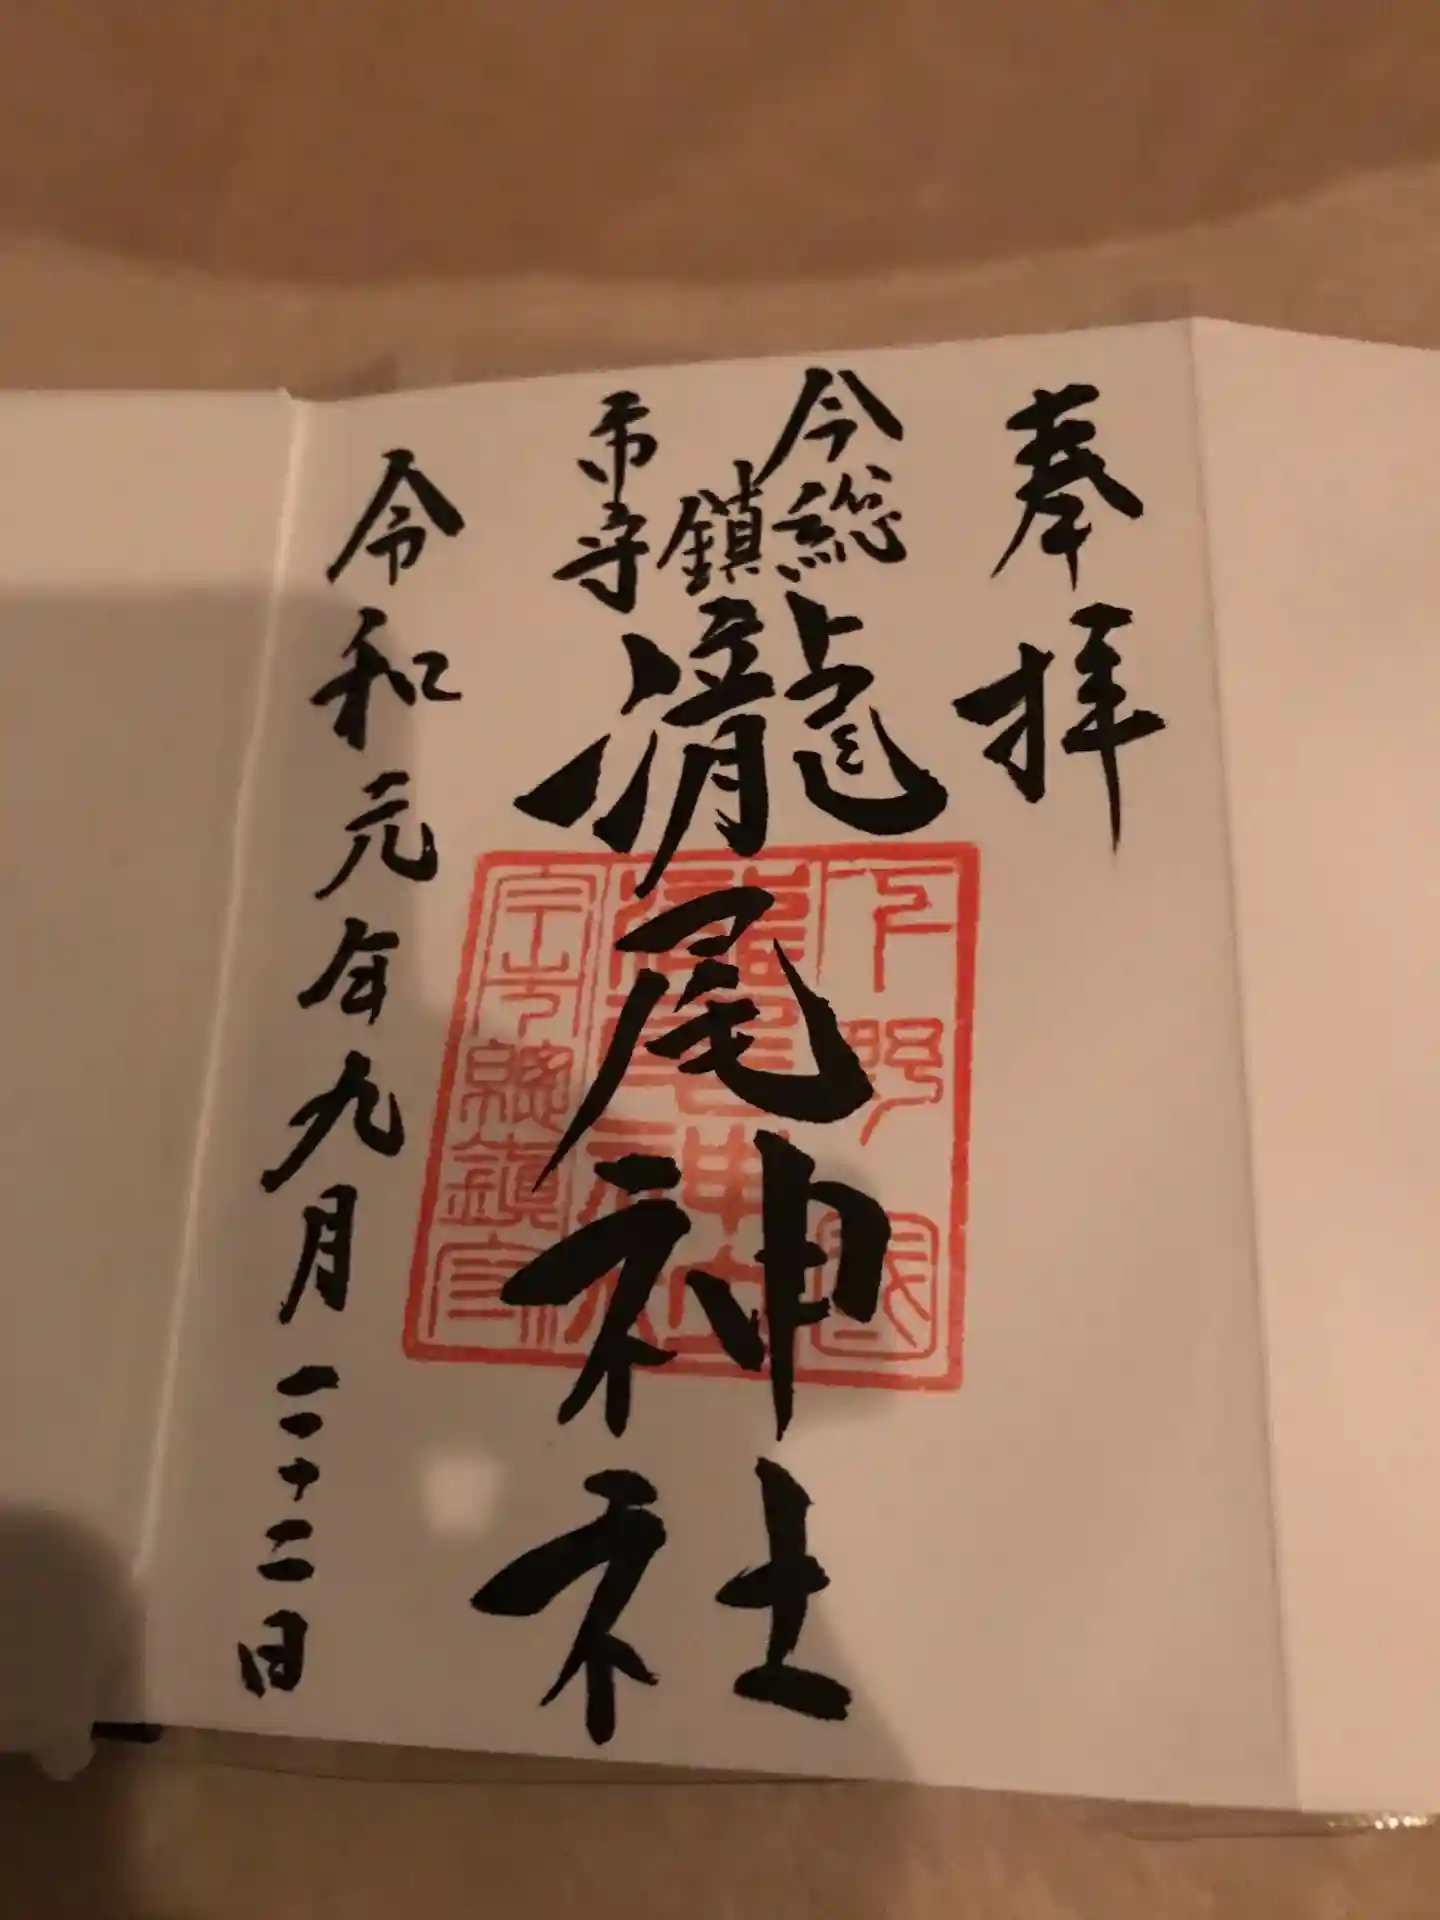 奉拝
今市
総鎮守
瀧尾神社
令和元年九月二十二日
下野國
瀧尾神社